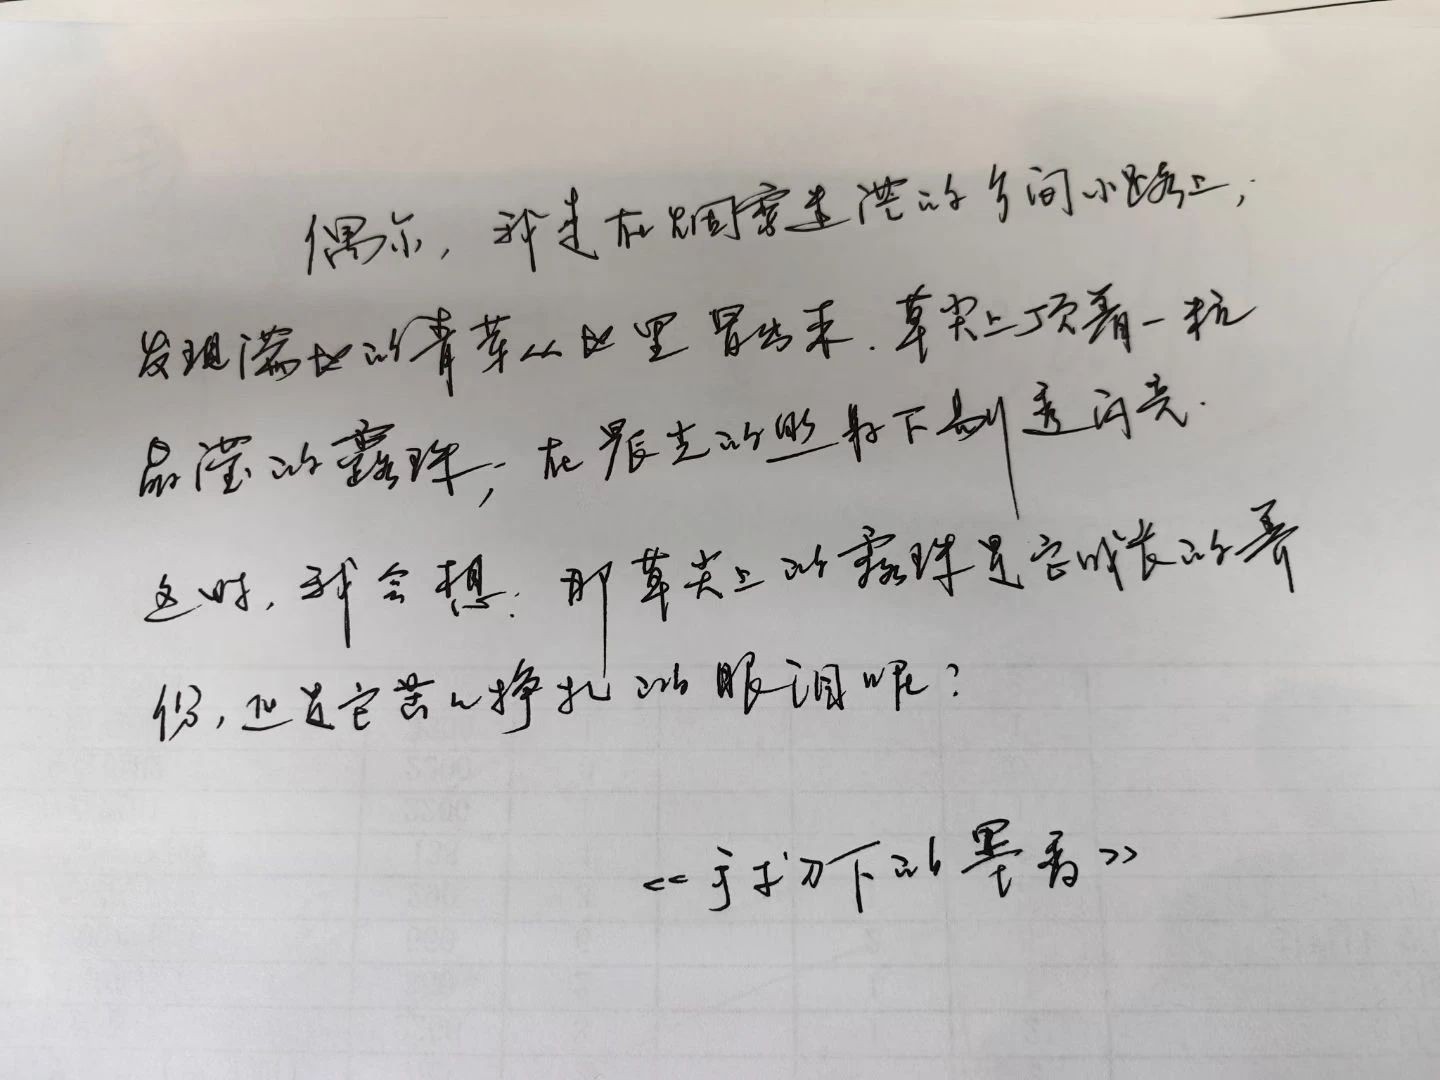 偶尔，我走在烟雾迷茫的乡间小路上，
发现满地的青草从地里冒出来.草尖上顶着一粒
晶莹的露珠，在晨光的照射下剔透闪亮.
这时，我会想：那草尖上的露珠是它成长的养
份，还是它苦心挣扎的眼泪呢？
<<手术刀下的墨香>>